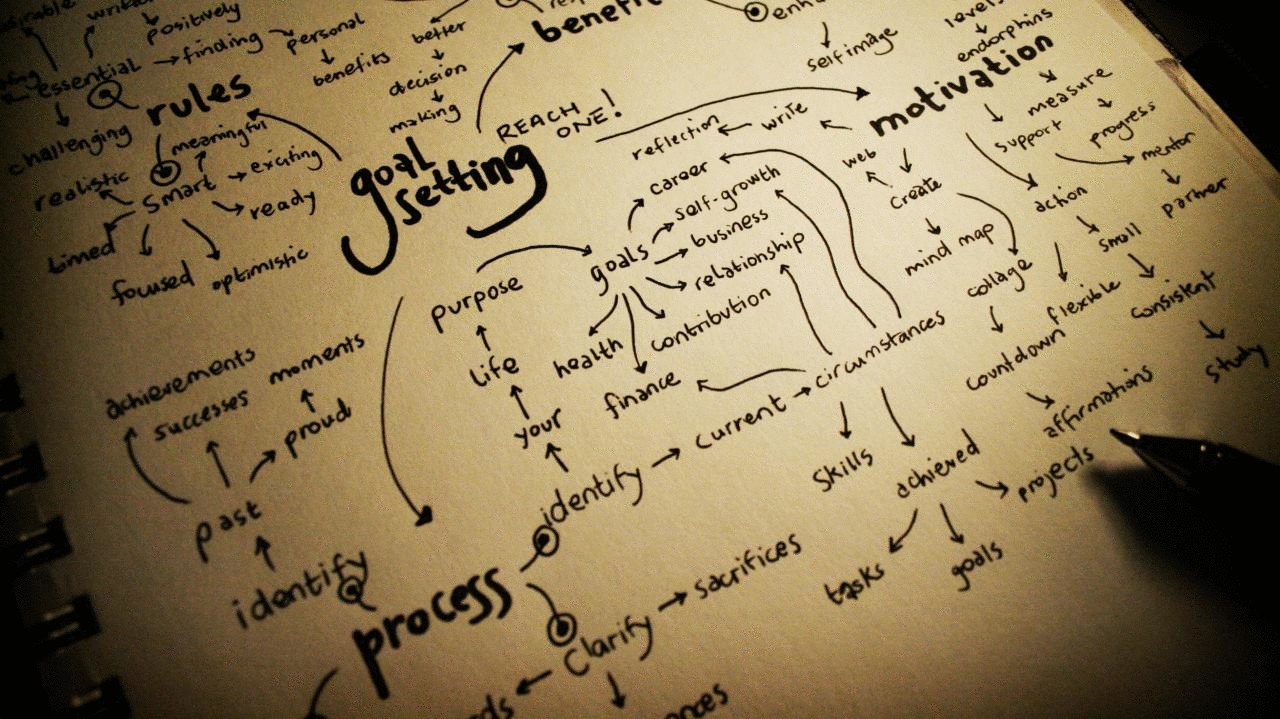 positively
essential
finding
personal
benefits
better
decision
making
self image
levels
endorphins
rules
challenging
meaningful
realistic
smart
exciting
ready
timed
focused
optimistic
goal
setting
REACH
ONE!
motivation
measure
progress
support
mentor
partner
reflection
write
web
create
mind map
collage
action
small
flexible
consistent
study
countdown
affirmations
career
self-growth
goals
business
relationship
contribution
health
finance
purpose
life
your
identify
current
circumstances
skills
achieved
projects
tasks
goals
achievements
successes
moments
proud
past
identify
process
Clarify
sacrifices